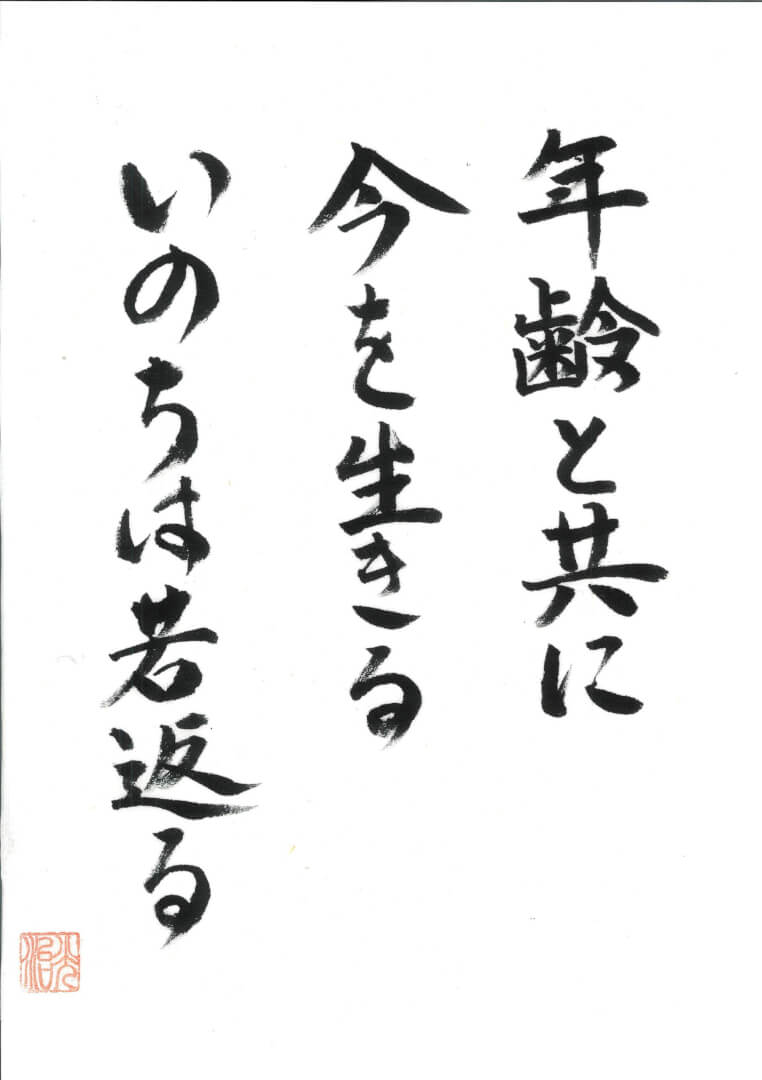 年齢と共に
今を生きる
いのちは若返る